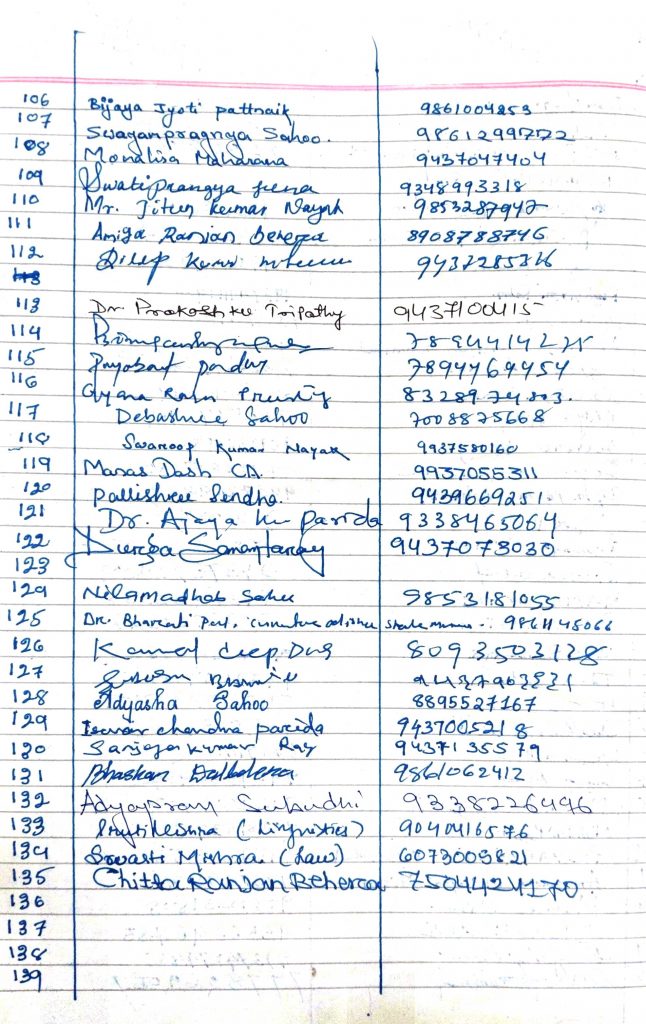 106 Bijaya Jyoti pattnaik 9861004253
107 Swayampragnya Sahoo. 9861299772
108 Monalisa Maharana 9437047404
109 Swatiprangya jena 9348993318
110 Mr. Jitun Kumar Nayak 9853287947
111 Amiya Ranjan Behera 8908788746
112 Dilip Kumar
113
113 Dr Prakash Ku Tripathy 9437100415
114
115 7894469454
116 Gyana Ranjan
117 Debashree Sahoo 7008875668
118 Swaroop Kumar Nayak 9937580160
119 Manas Dash CA. 9937055311
120 Pallishree 9439669251.
121 Dr. Ajaya ku parida 9338465064
122 Durga Samantaray 9437073030
123
124 Nilamadhab Sahu 9853181055
125 Dr. Bharati Pal, 9861148066
126 Kamal deep Das 8093503128
127
128 Adyasha Sahoo 8895527167
129 Iswar chandra parida 9437005218
130 Sanjaya Kumar Ray 9437135579
131 Bhaskar 9861062412
132 Subudhi 9338226496
133 (Linguistics) 9040416576
134 Swasti Mishra (Law) 6073009821
135 Chitta Ranjan Behera 7504424170
136
137
138
139